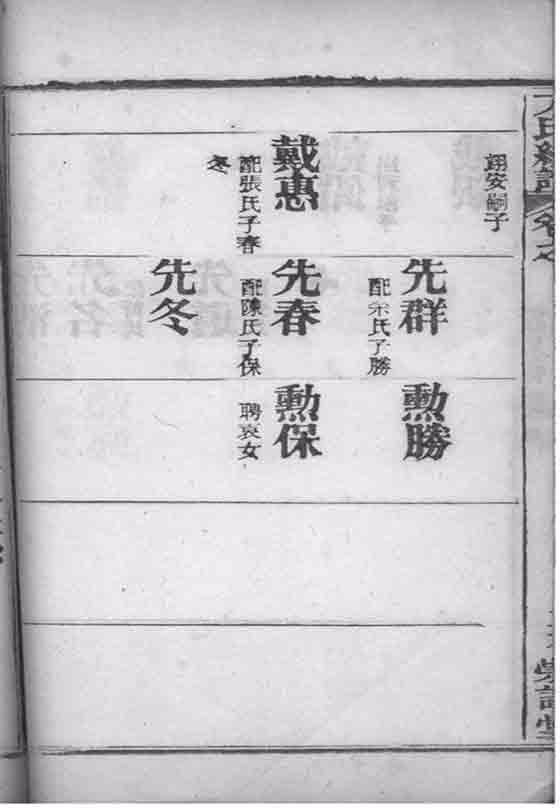 卷之
翊安嗣子
戴惠
配張氏子春
冬
先群
配宋氏子勝
先春
配陳氏子保
先冬
勲勝
勲保
聘袁女